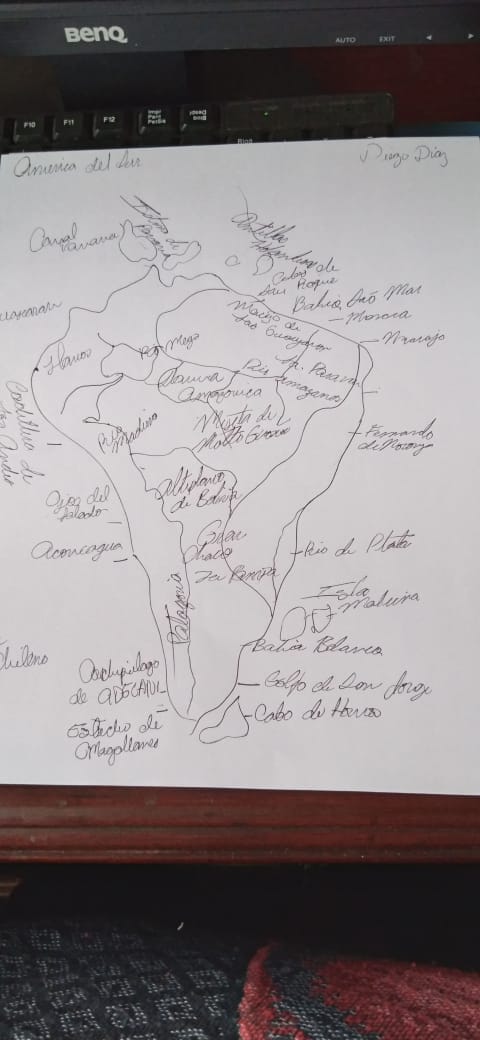 BenQ
AUTO EXIT
F10 F11 F12 Impr Pant PetSis
America del Sur
Diego Diaz
Canal
Panama
Antillas
Holandesas
Cabo de
San Roque
Bahia São Mar
Macizo de
las Guayanas
Naranjo
Llanos
Rio Mego
Rio
Amazonas
Llanura
Amazonica
Meseta de
Matto Grosso
Rio Madeira
Fernando
de Noronya
Cordillera de
los Andes
Altiplano
de Bolivia
Ojos del
Salado
Gran
Chaco
Aconcagua
Rio de Plata
La Pampa
Patagonia
Isla
Maluina
Bahia Blanca
Chileno
Archipielago
de
Golfo de San Jorge
Cabo de Hornos
Estrecho de
Magallanes